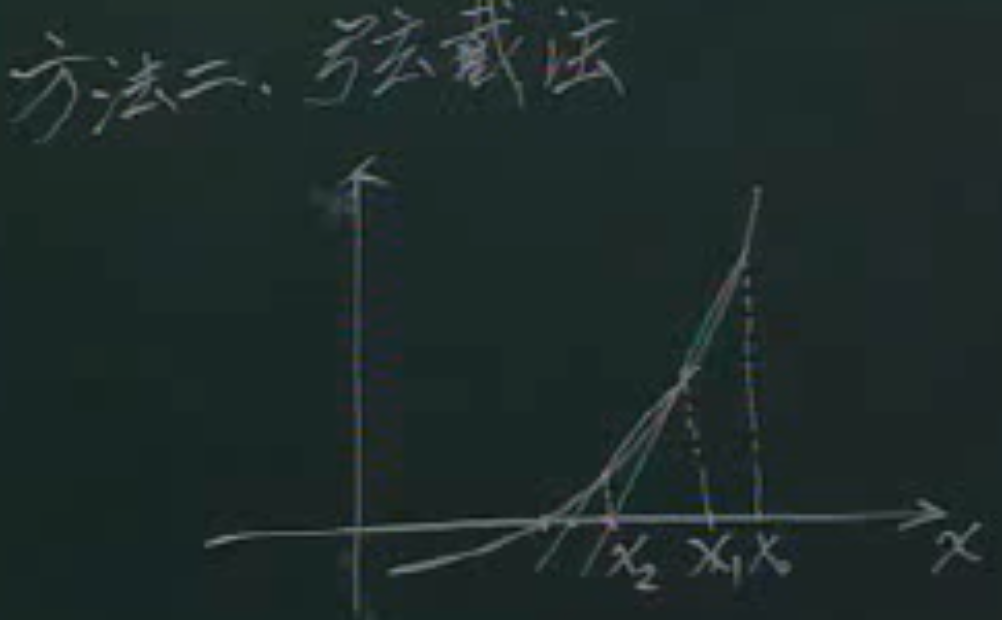 方法二、弦截法
x₂ x₁ x₀
x